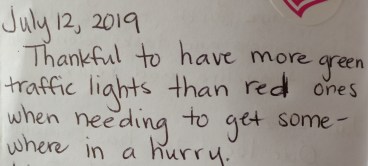 July 12, 2019
Thankful to have more green
traffic lights than red ones
when needing to get some-
where in a hurry.